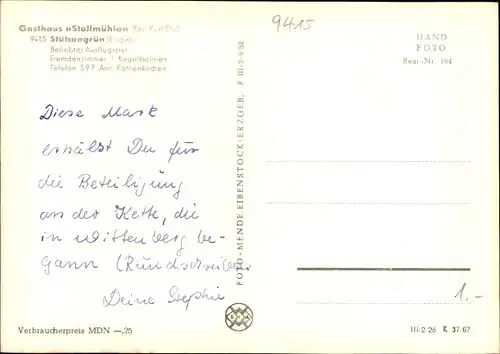 Gasthaus »Stollmühle« Bes. Kurt Stoll
9415 Stützengrün (Erzgeb.)
Beliebter Ausflugsort
Fremdenzimmer / Kegelbahnen
Telefon 597 Amt Rothenkirchen
9415
HAND
FOTO
Best.-Nr. 164
Diese Mark
erhälst Du für
die Beteiligung
an der Kette, die
in Wittenberg be-
gann (Rundschreiben
Deine Stephie
FOTO-MENDE EIBENSTOCK-ERZGEB. F III-2-9/58
1.-
Verbraucherpreis MDN —,25
III/2/26 K 37/67